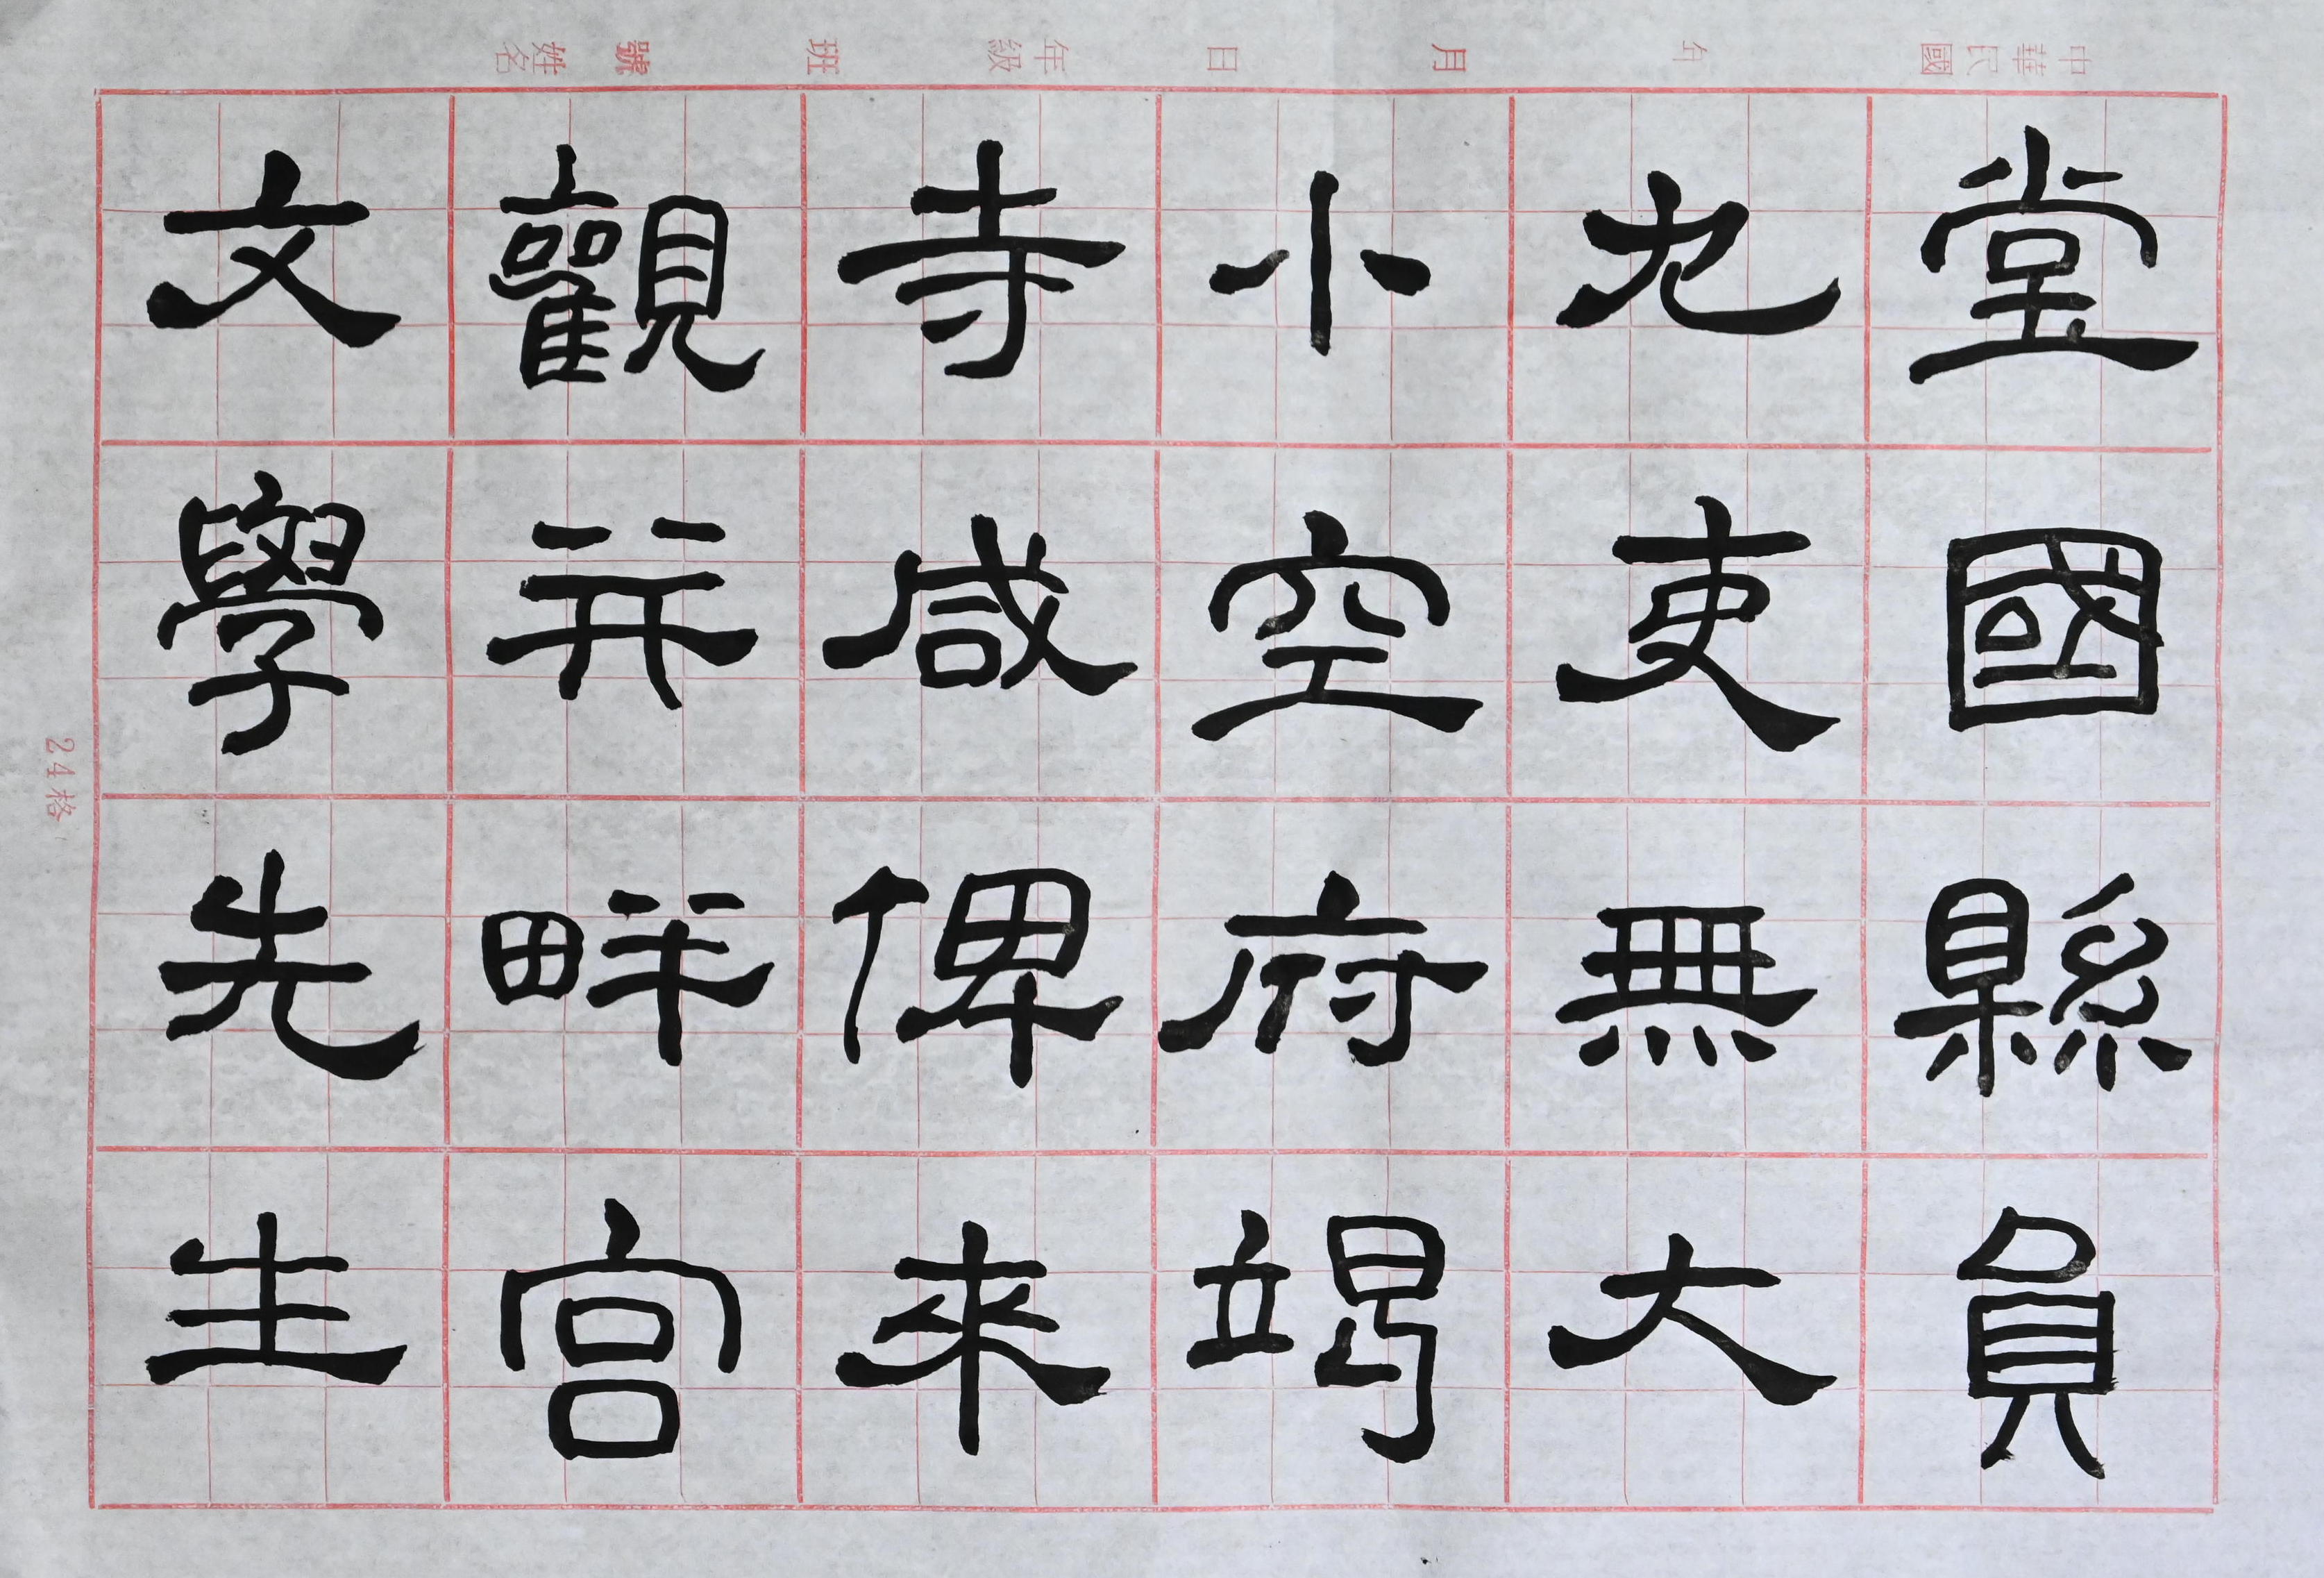 中華民國 年 月 日 年級 班 號 姓名
堂國縣員
冗吏無大
小空府竭
寺咸俾來
觀并畔宮
文學先生
24格